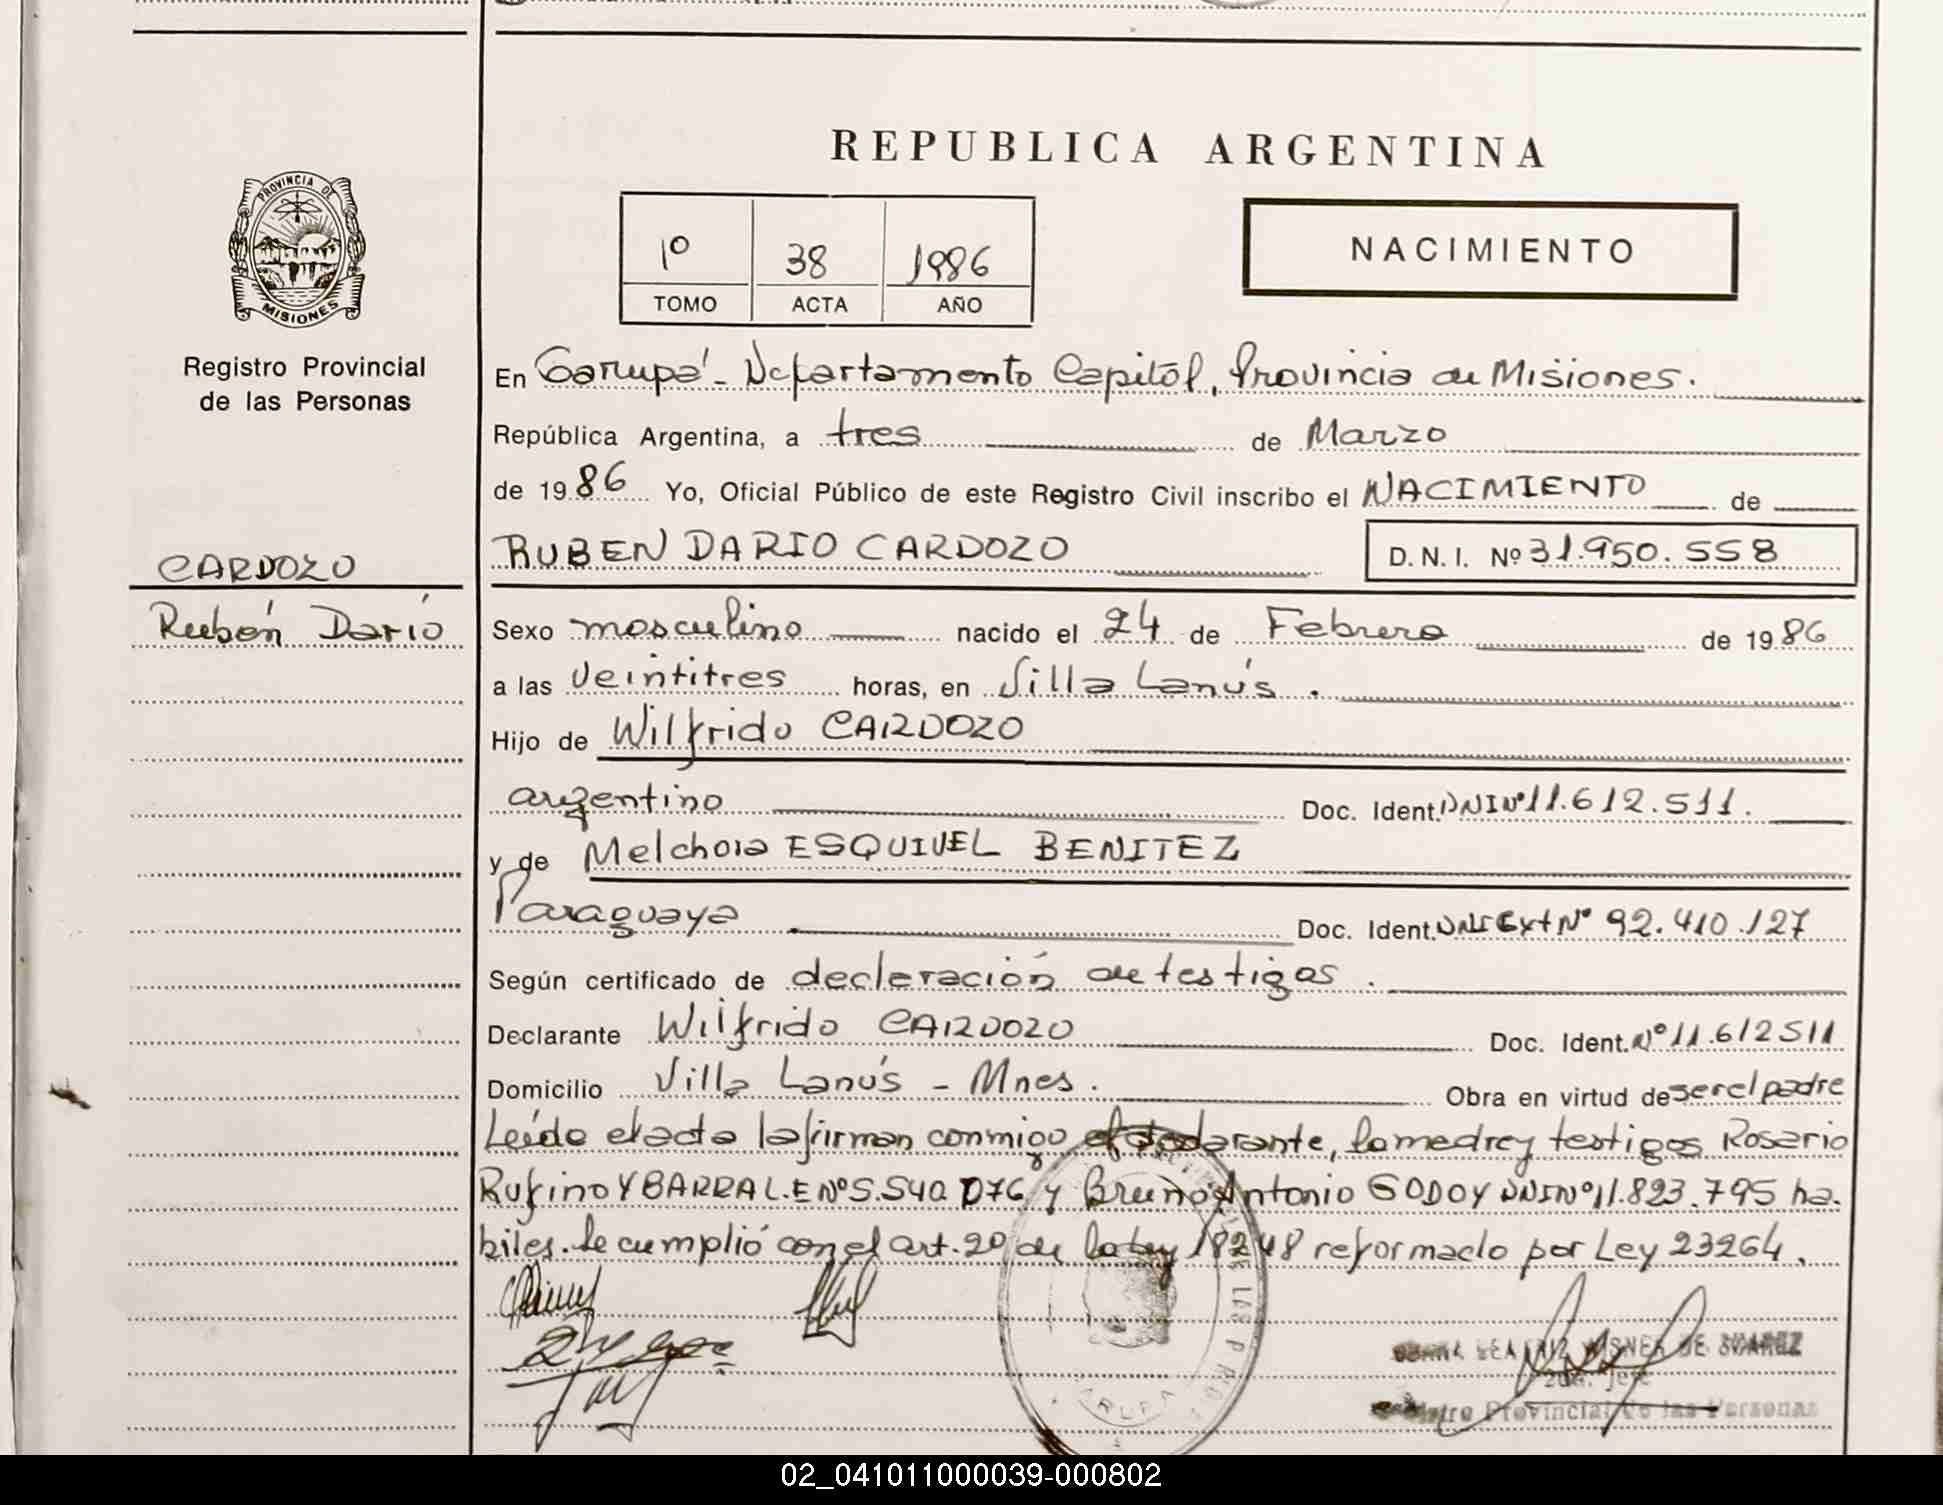 REPUBLICA ARGENTINA
PROVINCIA DE
MISIONES
Registro Provincial
de las Personas
1º 38 1986
TOMO ACTA AÑO
NACIMIENTO
En Garupá - Departamento Capital, Provincia de Misiones.
República Argentina, a tres de Marzo
de 1986 Yo, Oficial Público de este Registro Civil inscribo el NACIMIENTO de
CARDOZO
RUBEN DARIO CARDOZO D.N.I. Nº 31.950.558
Rubén Darío
Sexo masculino nacido el 24 de Febrero de 1986
a las veintitres horas, en Villa Lanús.
Hijo de Wilfrido CARDOZO
argentino Doc. Ident. DNI Nº 11.612.511.
y de Melchora ESQUIVEL BENITEZ
Paraguaya Doc. Ident. DNI Ext Nº 92.410.127
Según certificado de declaración de testigos.
Declarante Wilfrido CARDOZO Doc. Ident. Nº 11.612511
Domicilio Villa Lanús - Mnes. Obra en virtud de ser el padre
Leída el acta la firman conmigo el declarante, la madre y testigos Rosario
Rufino YBARRA L.E Nº 5.540.076 y Bruno Antonio GODOY DNI Nº 11.823.795 ha-
biles. Se cumplió con el art. 20 de la Ley 18248 reformado por Ley 23264.
DE LAS P
BEATRIZ DE SUAREZ
Jefe
Registro Provincial de las Personas
02_041011000039-000802